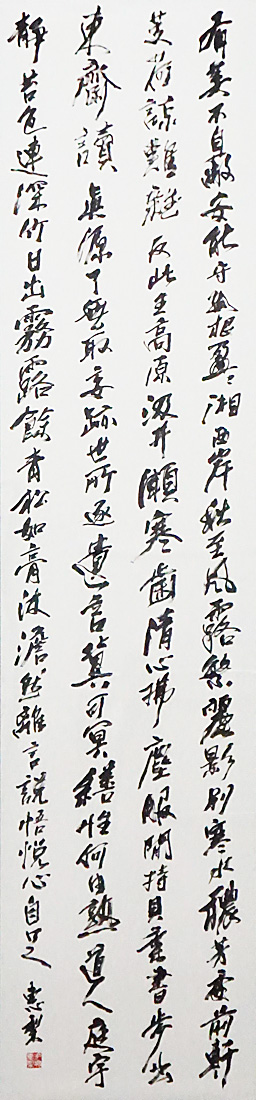 有美不自蔽安能守孤根盈々湘西岸秋至風露繁麗影別寒水穠芳委前軒
芰荷諒難雜反此生高原汲井漱寒齒清心拂塵服閒持貝葉書步出
東齋讀真源了無取妄跡世所逐遺言冀可冥繕性何由熟道人庭宇
靜苔色連深竹日出霧露餘青松如膏沐澹然離言說悟悅心自足 惠